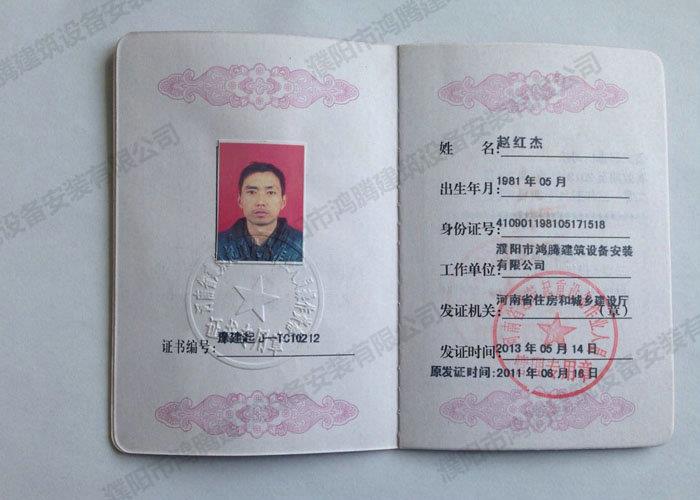 证书编号: 豫建起 J—TC10212
姓 名: 赵红杰
出生年月: 1981 年 05 月
身份证号: 410901198105171518
工作单位: 濮阳市鸿腾建筑设备安装
有限公司
发证机关: 河南省住房和城乡建设厅
(章)
发证时间: 2013 年 05 月 14 日
原发证时间: 2011 年 06 月 16 日
专用章
濮阳市鸿腾建筑设备安装有限公司